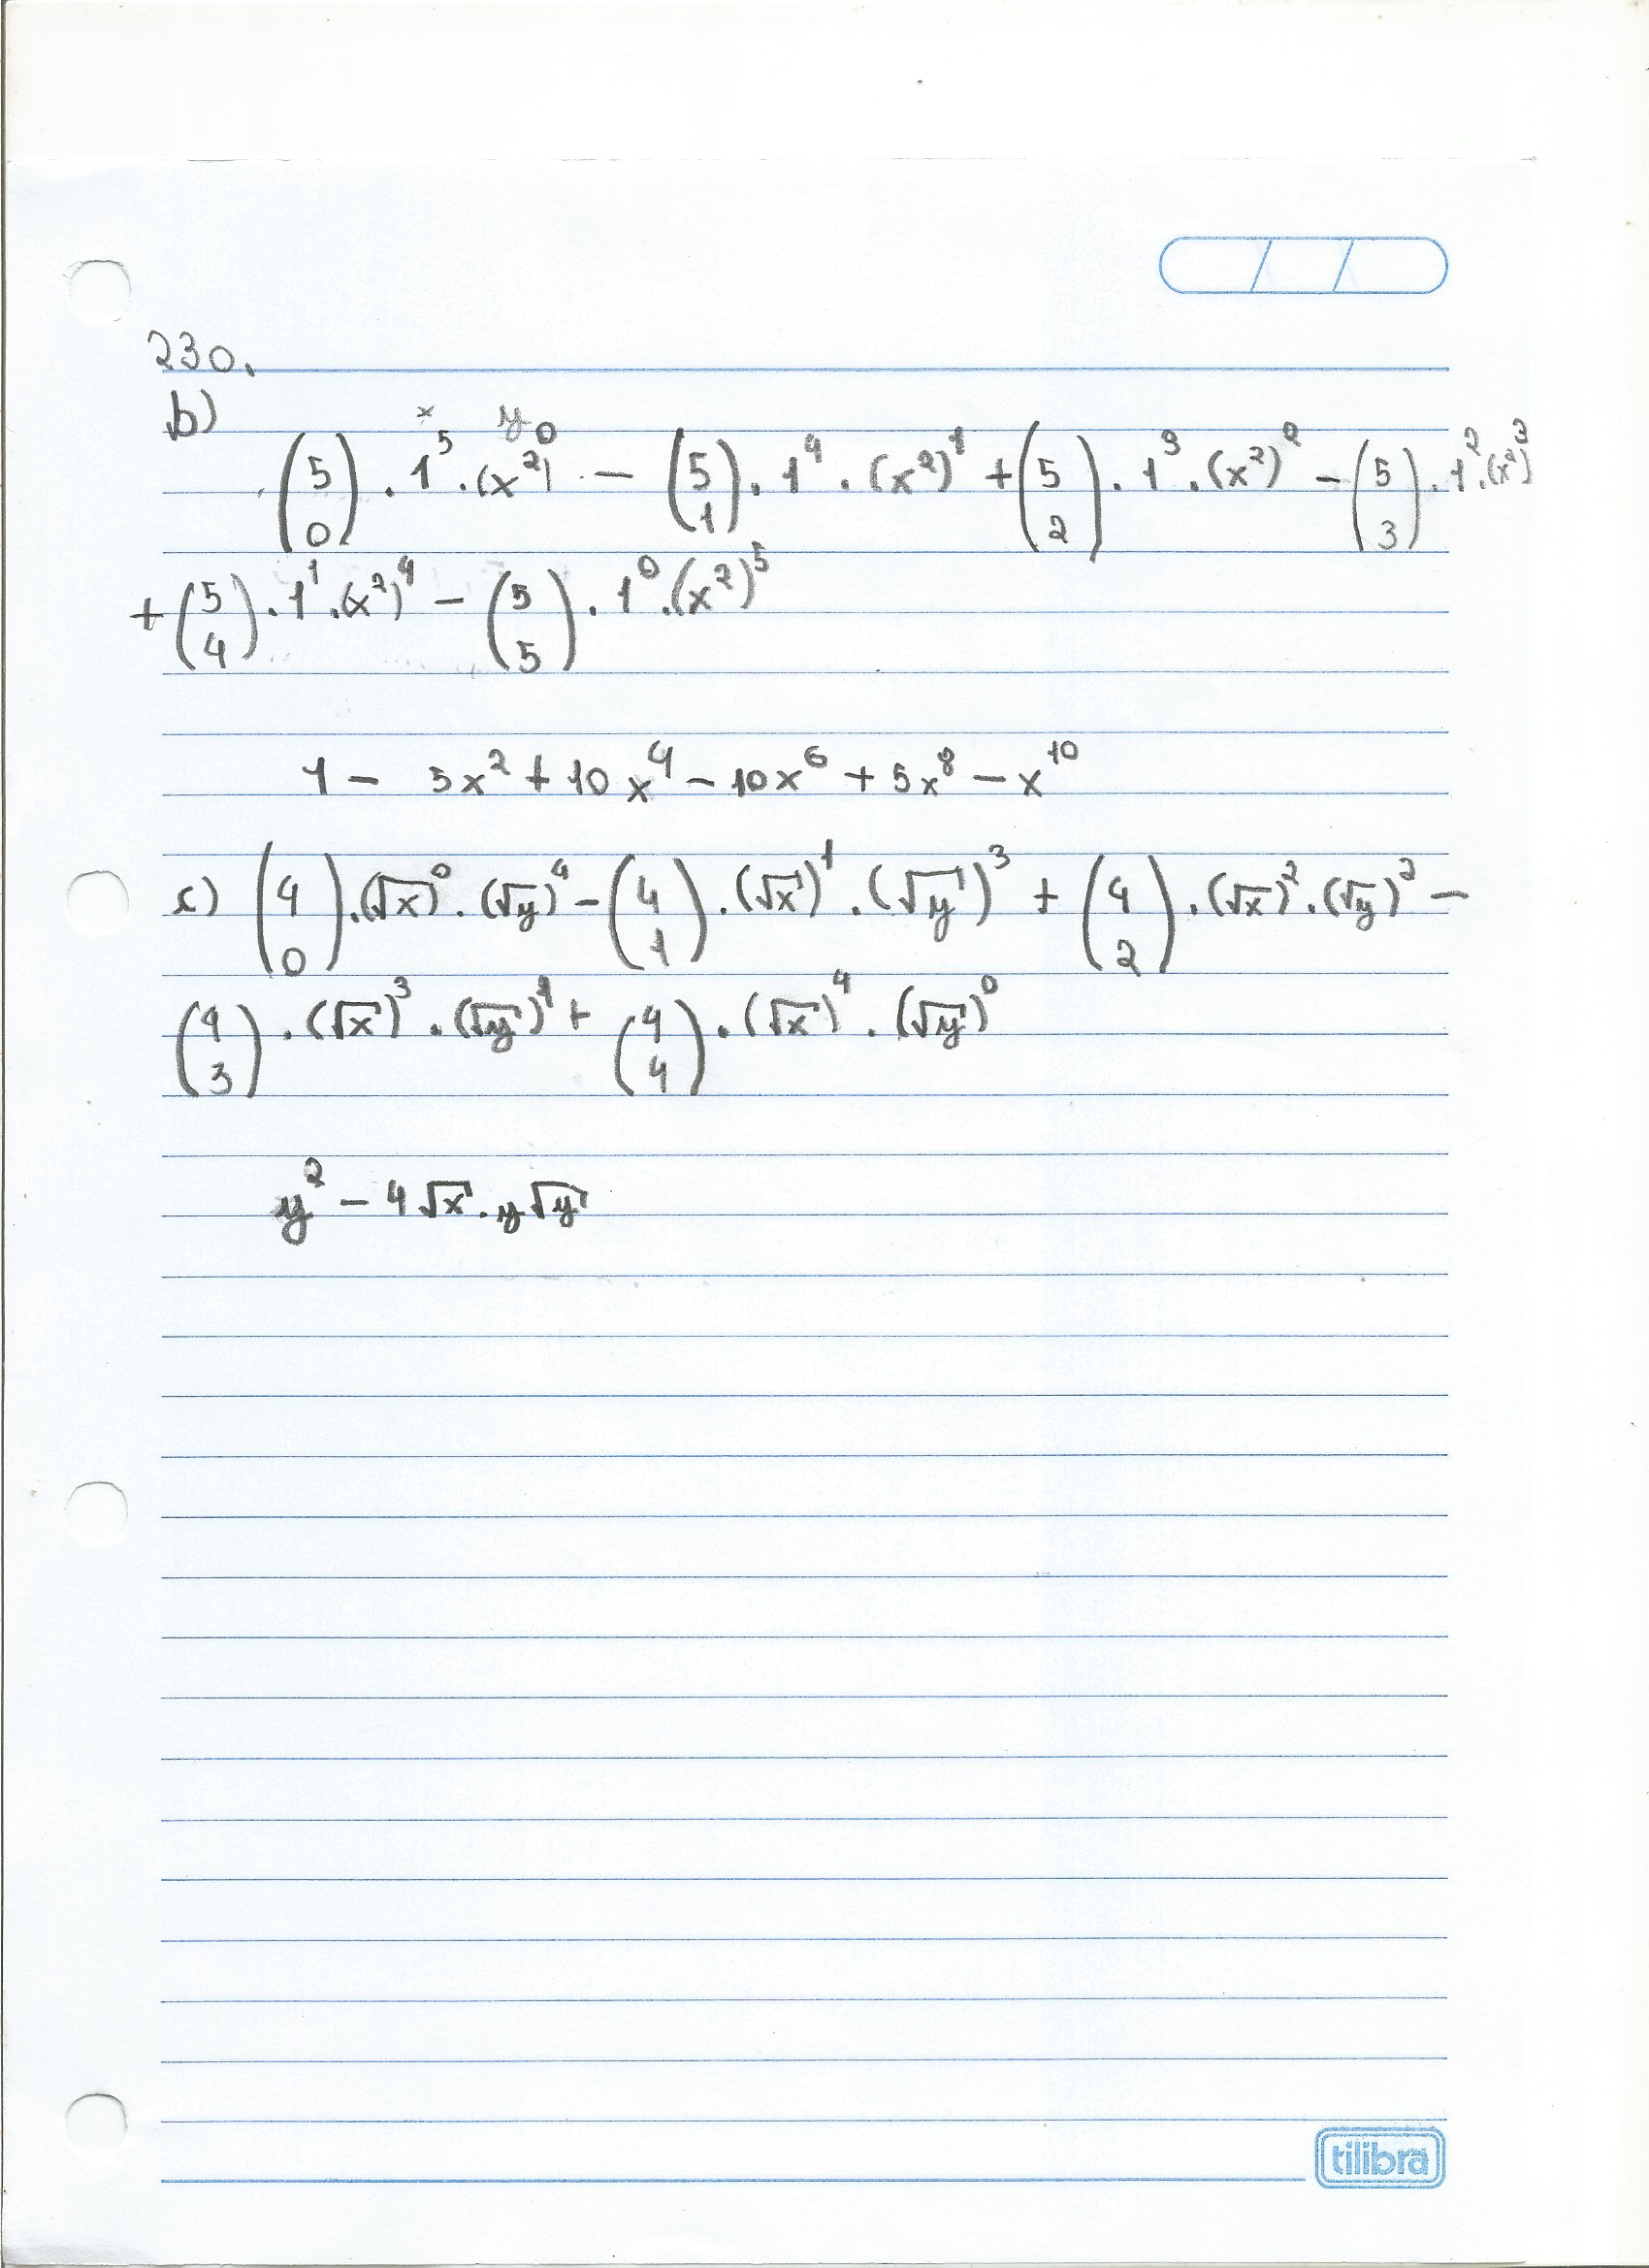 230.
b)
x y
(5 0) . 1^5 . (x^2)^0 - (5 1) . 1^4 . (x^2)^1 + (5 2) . 1^3 . (x^2)^2 - (5 3) . 1^2 . (x^2)^3
+ (5 4) . 1^1 . (x^2)^4 - (5 5) . 1^0 . (x^2)^5
1 - 5x^2 + 10x^4 - 10x^6 + 5x^8 - x^10
c) (4 0) . (√x)^0 . (√y)^4 - (4 1) . (√x)^1 . (√y)^3 + (4 2) . (√x)^2 . (√y)^2 -
(4 3) . (√x)^3 . (√y)^1 + (4 4) . (√x)^4 . (√y)^0
y^2 - 4√x . y√y
tilibra